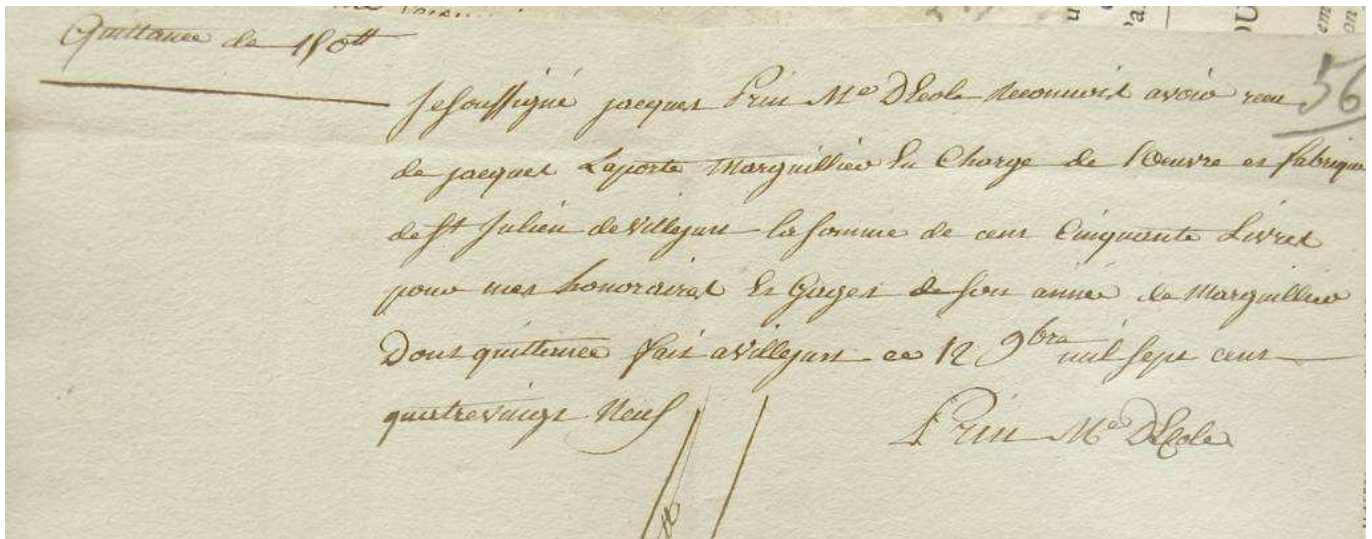 Quittance de 150ᵗᵗ
56
Je soussigné jacques Prin Mᵉ DEcole Reconnois avoir recu
de jacques Laporte Marguillier En Charge de l'Oeuvre et fabrique
de Sᵗ Julien de Villejuif la somme de cent Cinquante Livres
pour mes honoraires Et Gages de son année de Marguillier
Dont quittance fait a Villejuif ce 12 9ᵇʳᵉ mil sept cent
quatrevingt Neuf
Prin Mᵉ DEcole